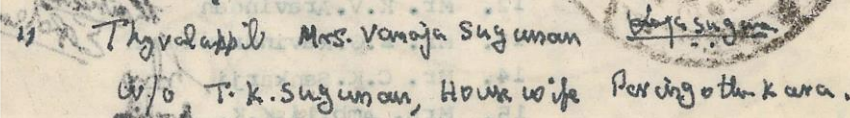 11 Thyvalappil Mrs. Vanaja Sugunan
W/o T.K. Sugunan, House wife Peringothkara.